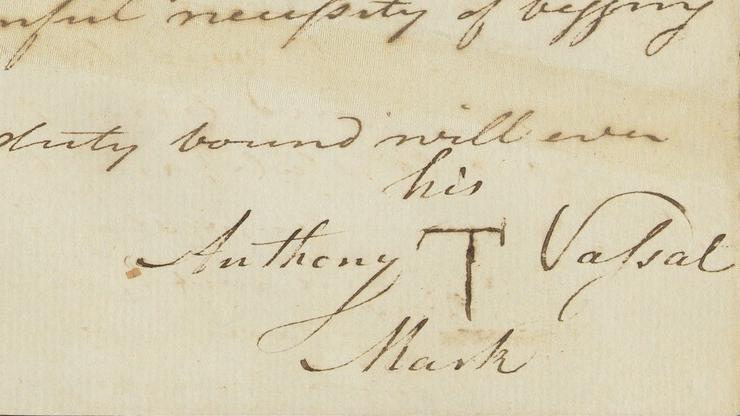 necessity of begging
duty bound will ever
his
Anthony T Vassal
Mark